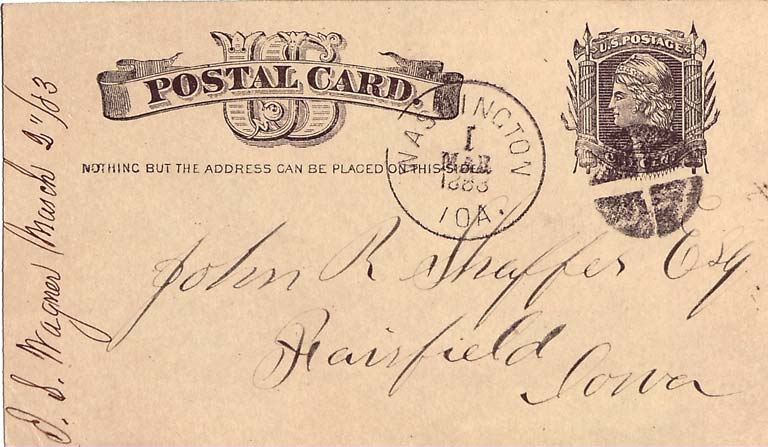 U S
POSTAL CARD.
NOTHING BUT THE ADDRESS CAN BE PLACED ON THIS SIDE.
U.S. POSTAGE
ONE CENT
WASHINGTON
1
MAR
1883
IOA.
John R Shaffer Esq
Fairfield
Iowa
S. Wagner March 2"/83